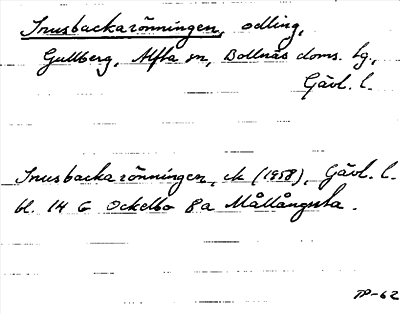 Snusbackarönningen, odling,
Gullberg, Alfta sn, Bollnäs doms. tg.,
Gävl. l.
Snusbackarönningen, ek (1958), Gävl. l.
bl. 14 G Ockelbo 8a Mållångsta.
TP-62